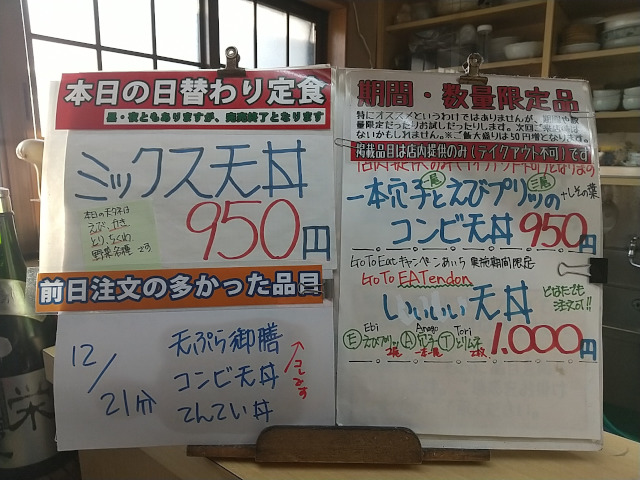 本日の日替わり定食
昼・夜ともありますが、完売終了となります
ミックス天丼
本日の天タネは
えび、かき
とり、ちくわ
野菜各種 です
950円
前日注文の多かった品目
12/21分
天ぷら御膳
コンビ天丼
てんてい丼
期間・数量限定品
特にオススメというわけではありませんが、期間や数
量限定だったりお試しだったりします。次回
ないかもしれません。※ご飯大盛りは50円増となります。
掲載品目は店内提供のみ(テイクアウト不可)です
一本穴子とえびプリッの
一尾
二尾
+しその葉
コンビ天丼 950円
GoToEatキャンペーンあいち 実施期間限定
GoTo EATendon
いいいい天丼
どなたでも
注文可!!
Ebi Anago Tori
E えびプリッ 2尾 A 穴子 一本 T とりムネ 2枚
1.000円